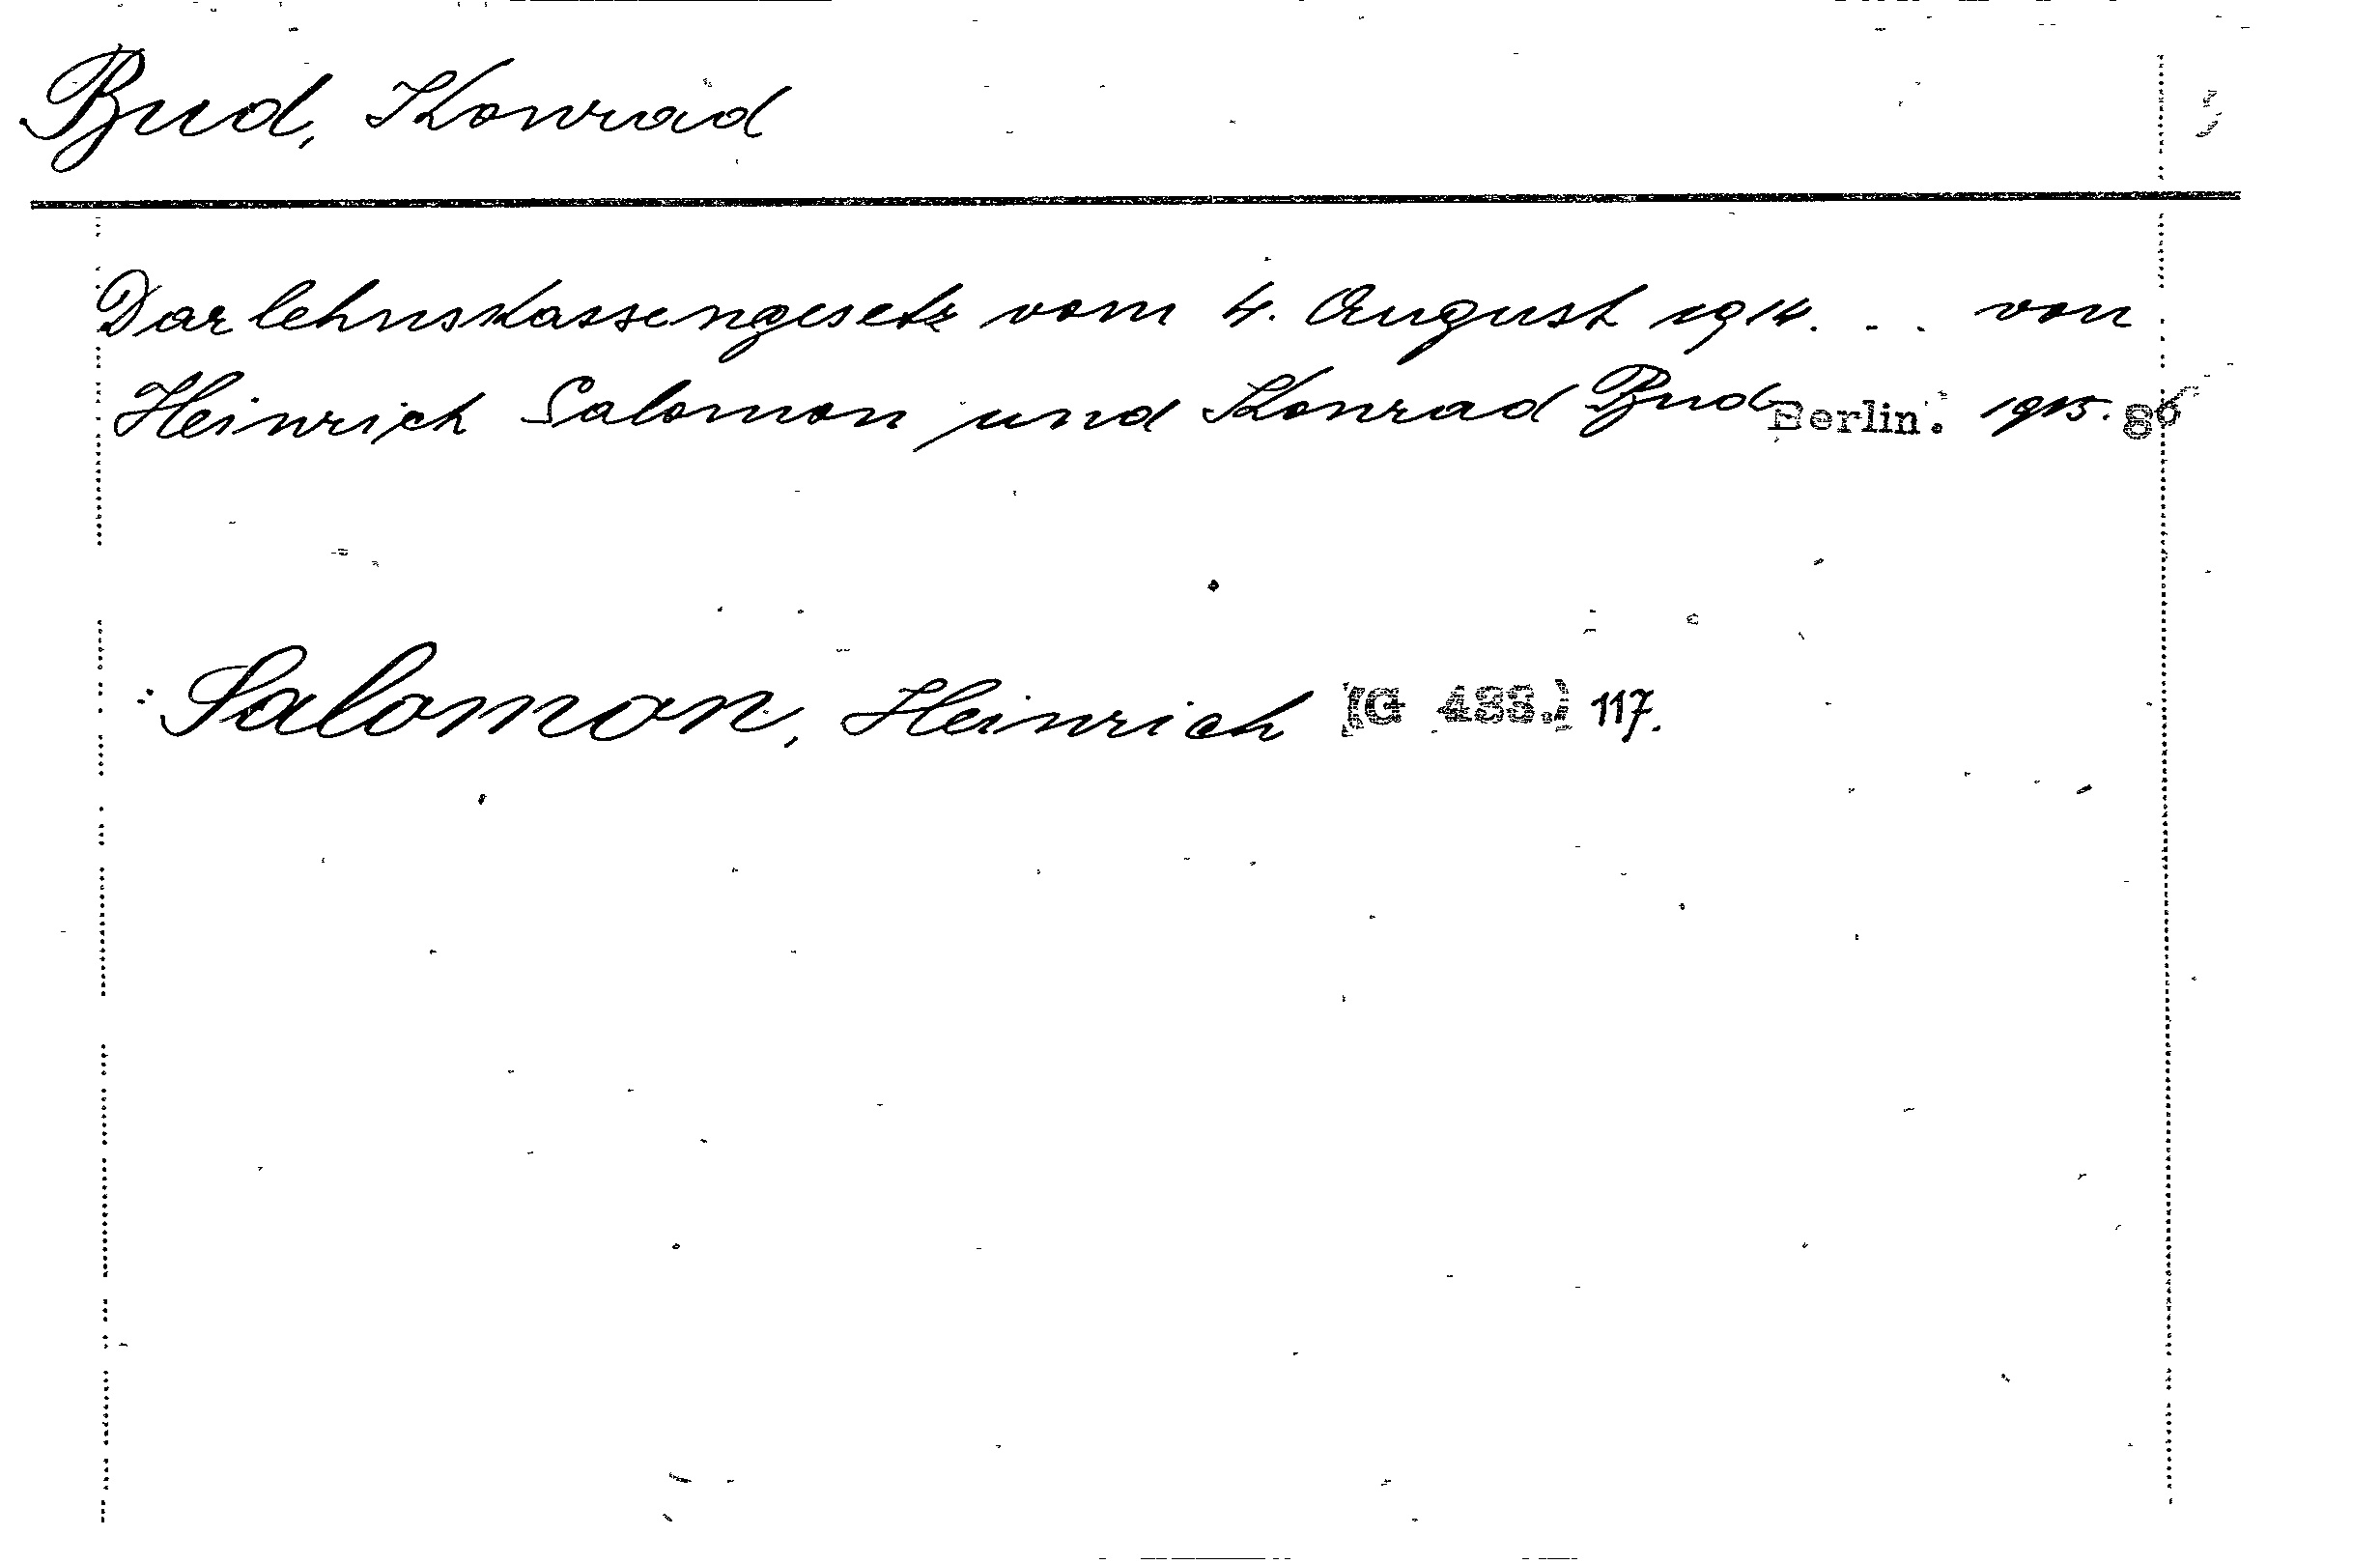 Bud, Konrad
Darlehnskassengesetz vom 4. August 1914. . . von
Heinrich Salomon und Konrad Bud Berlin. 1915. 8°
: Salomon, Heinrich (G 433.) 117.